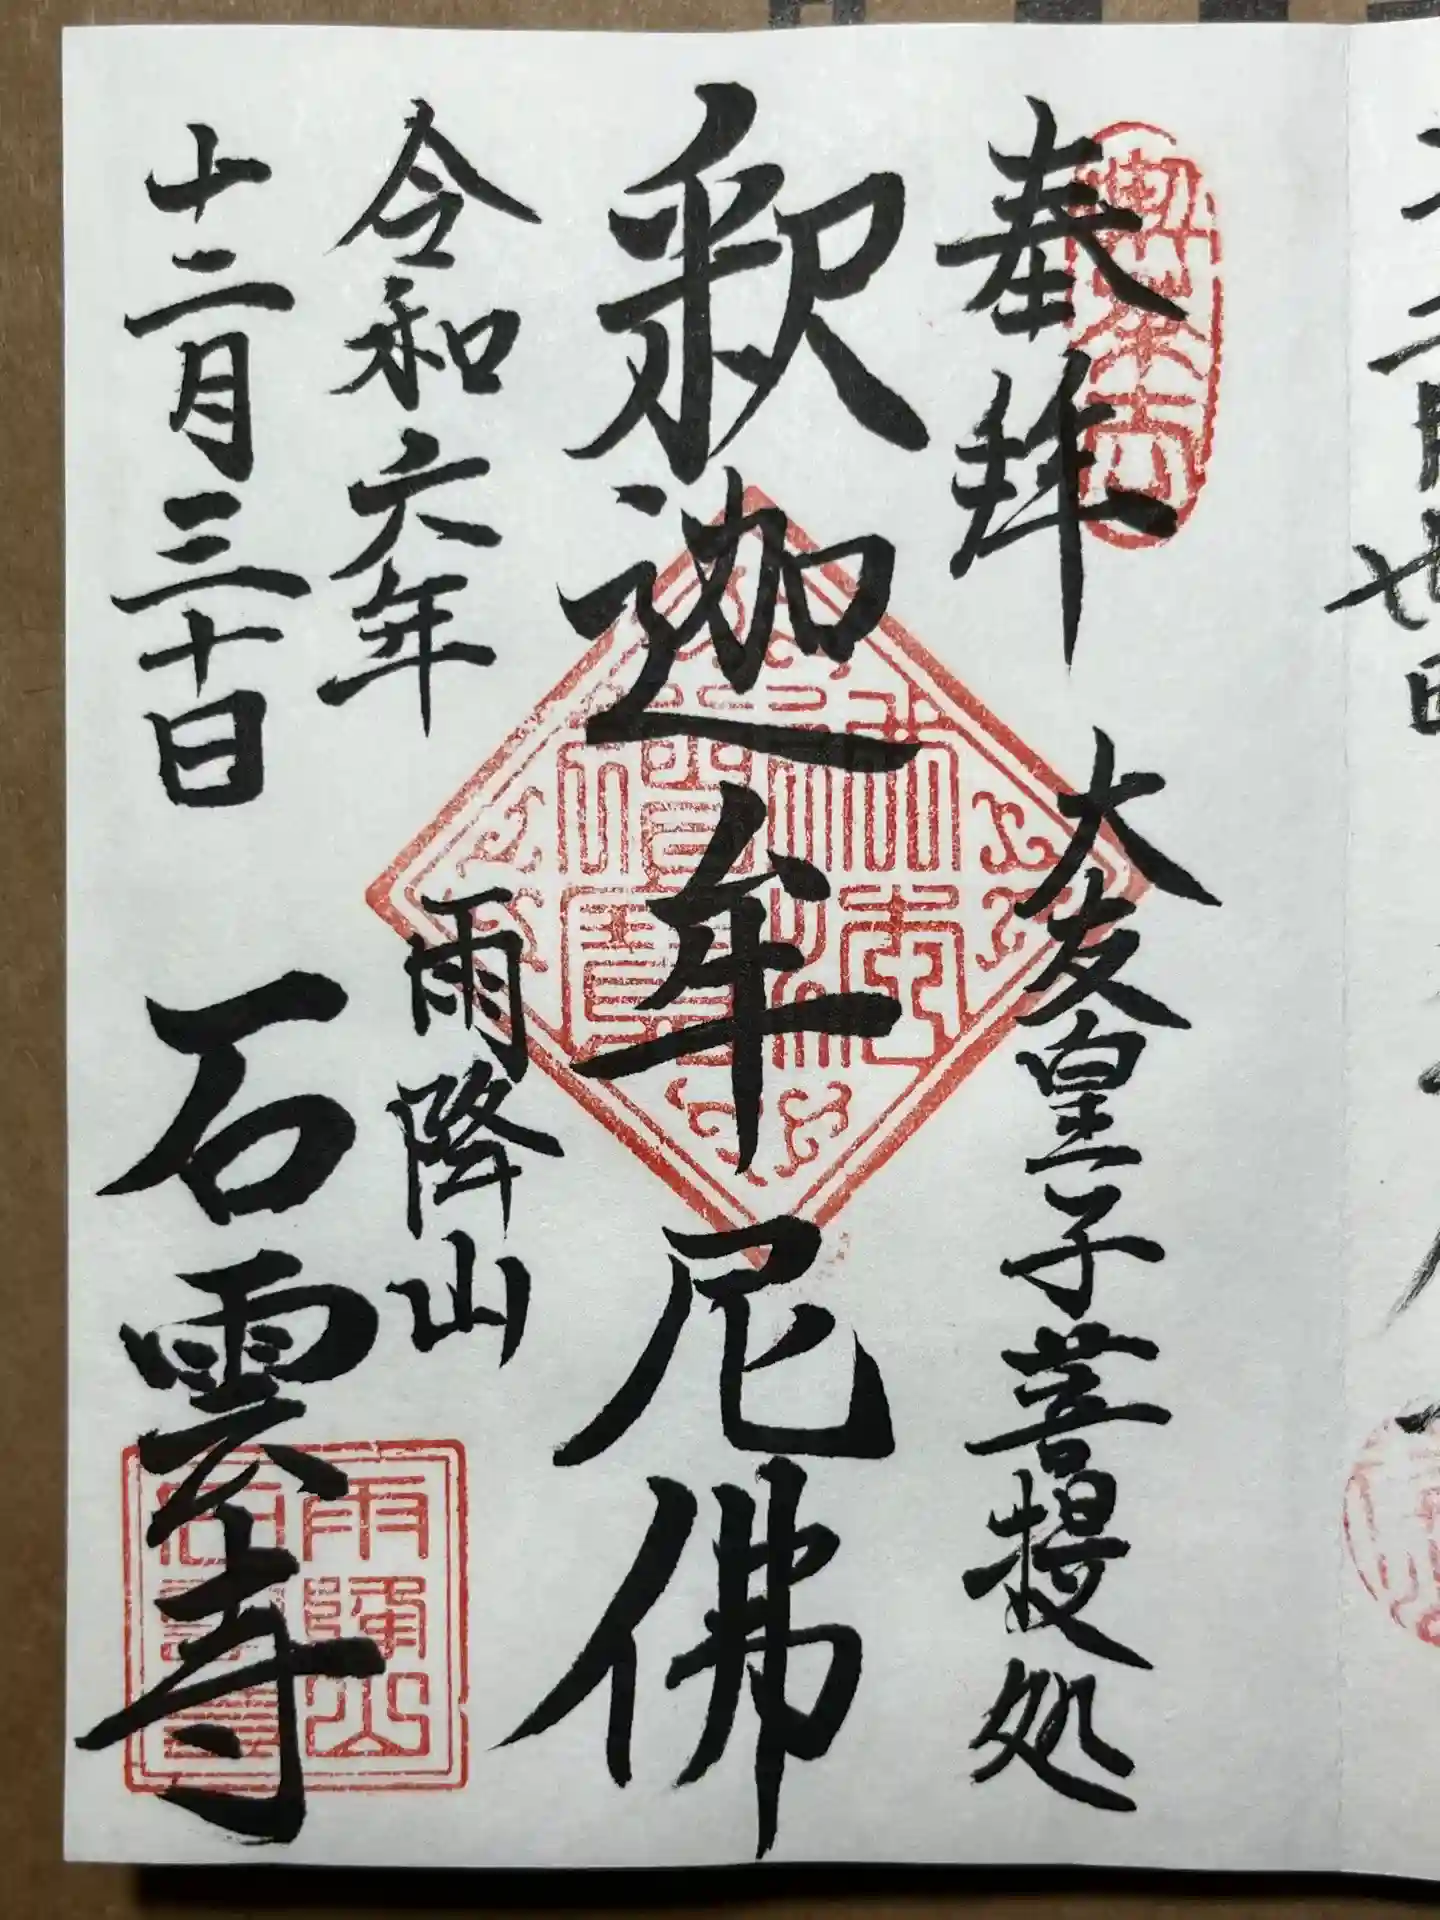 奉拝
大友皇子菩提処
釈迦牟尼佛
令和六年
十二月三十日
雨降山
石雲寺
雨降山
石雲寺